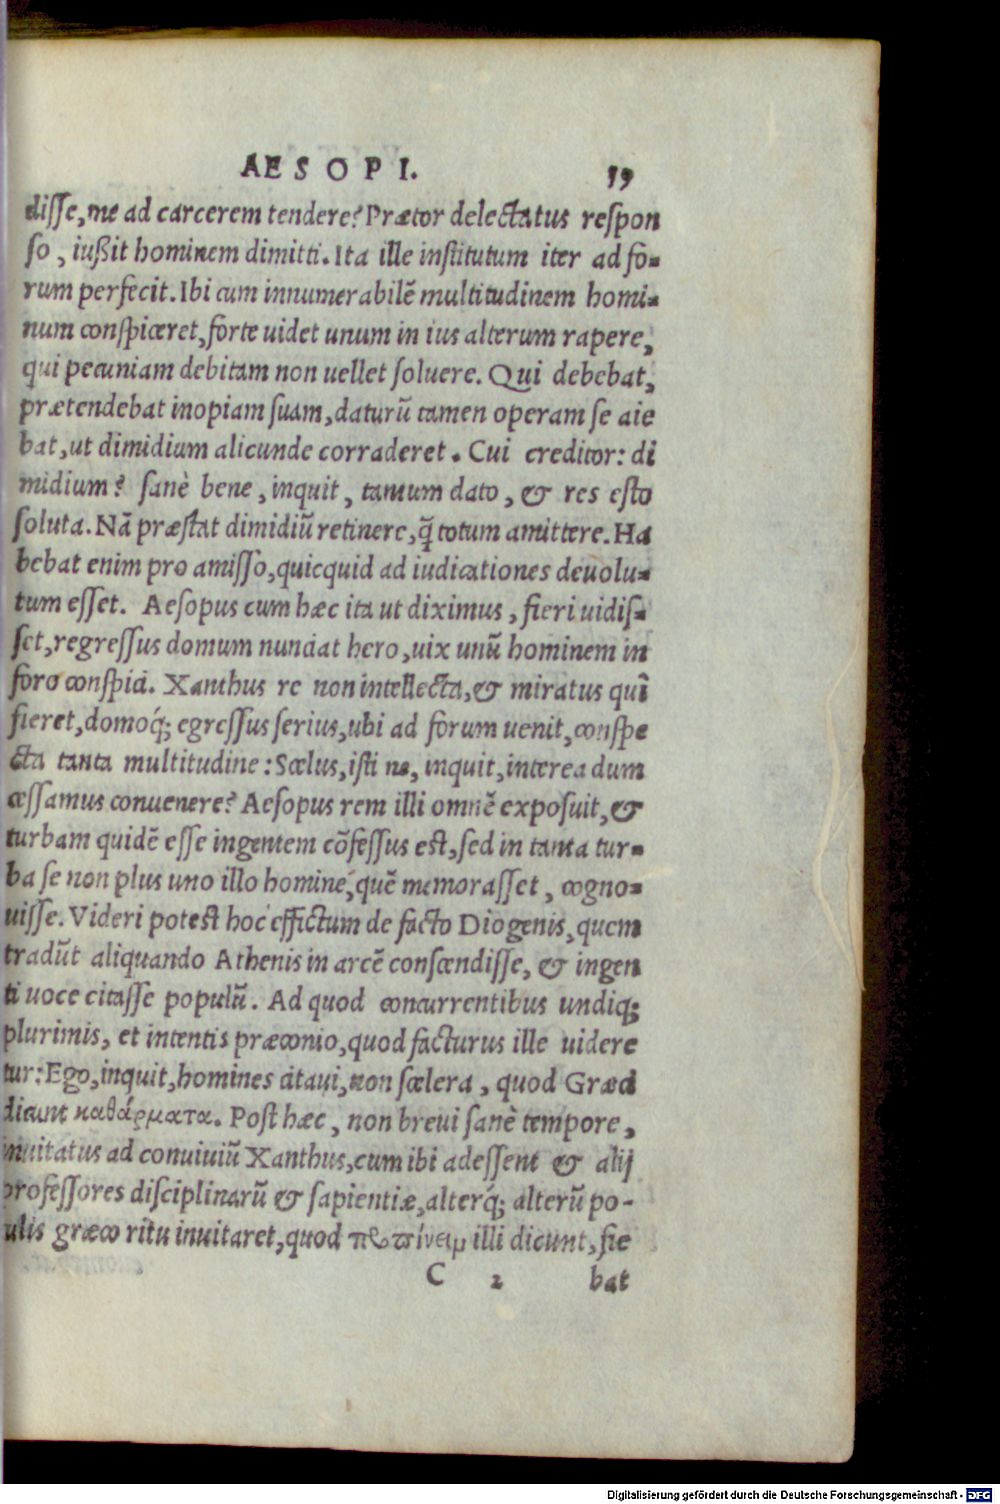 AESOPI. 19
disse, me ad carcerem tendere? Prætor delectatus respon
so, iußit hominem dimitti. Ita ille institutum iter ad fo-
rum perfecit. Ibi cum innumerabilē multitudinem homi-
num conspiceret, forte uidet unum in ius alterum rapere,
qui pecuniam debitam non uellet soluere. Qui debebat,
prætendebat inopiam suam, daturū tamen operam se aie
bat, ut dimidium alicunde corraderet. Cui creditor: di
midium? sanè bene, inquit, tantum dato, & res esto
soluta. Nā præstat dimidiū retinere, q̄ totum amittere. Ha
bebat enim pro amisso, quicquid ad iudicationes deuolu-
tum esset. Aesopus cum hæc ita ut diximus, fieri uidis-
set, regressus domum nunciat hero, uix unū hominem in
foro conspici. Xanthus re non intellecta, & miratus quî
fieret, domoq́; egressus serius, ubi ad forum uenit, conspe
cta tanta multitudine: Scelus, isti ne, inquit, interea dum
cessamus conuenere? Aesopus rem illi omnē exposuit, &
turbam quidē esse ingentem cōfessus est, sed in tanta tur-
ba se non plus uno illo homine, quē memorasset, cogno-
uisse. Videri potest hoc effictum de facto Diogenis, quem
tradūt aliquando Athenis in arcē conscendisse, & ingen
ti uoce citasse populū. Ad quod concurrentibus undiq;
plurimis, et intentis præconio, quod facturus ille uidere
tur: Ego, inquit, homines citaui, non scelera, quod Græci
dicunt καθάρματα. Post hæc, non breui sanè tempore,
inuitatus ad conuiuiū Xanthus, cum ibi adessent & alij
professores disciplinarū & sapientiæ, alterq́; alterū po-
ulis græco ritu inuitaret, quod προπίνειμ illi dicunt, fie
C 2 bat
Digitalisierung gefördert durch die Deutsche Forschungsgemeinschaft - DFG